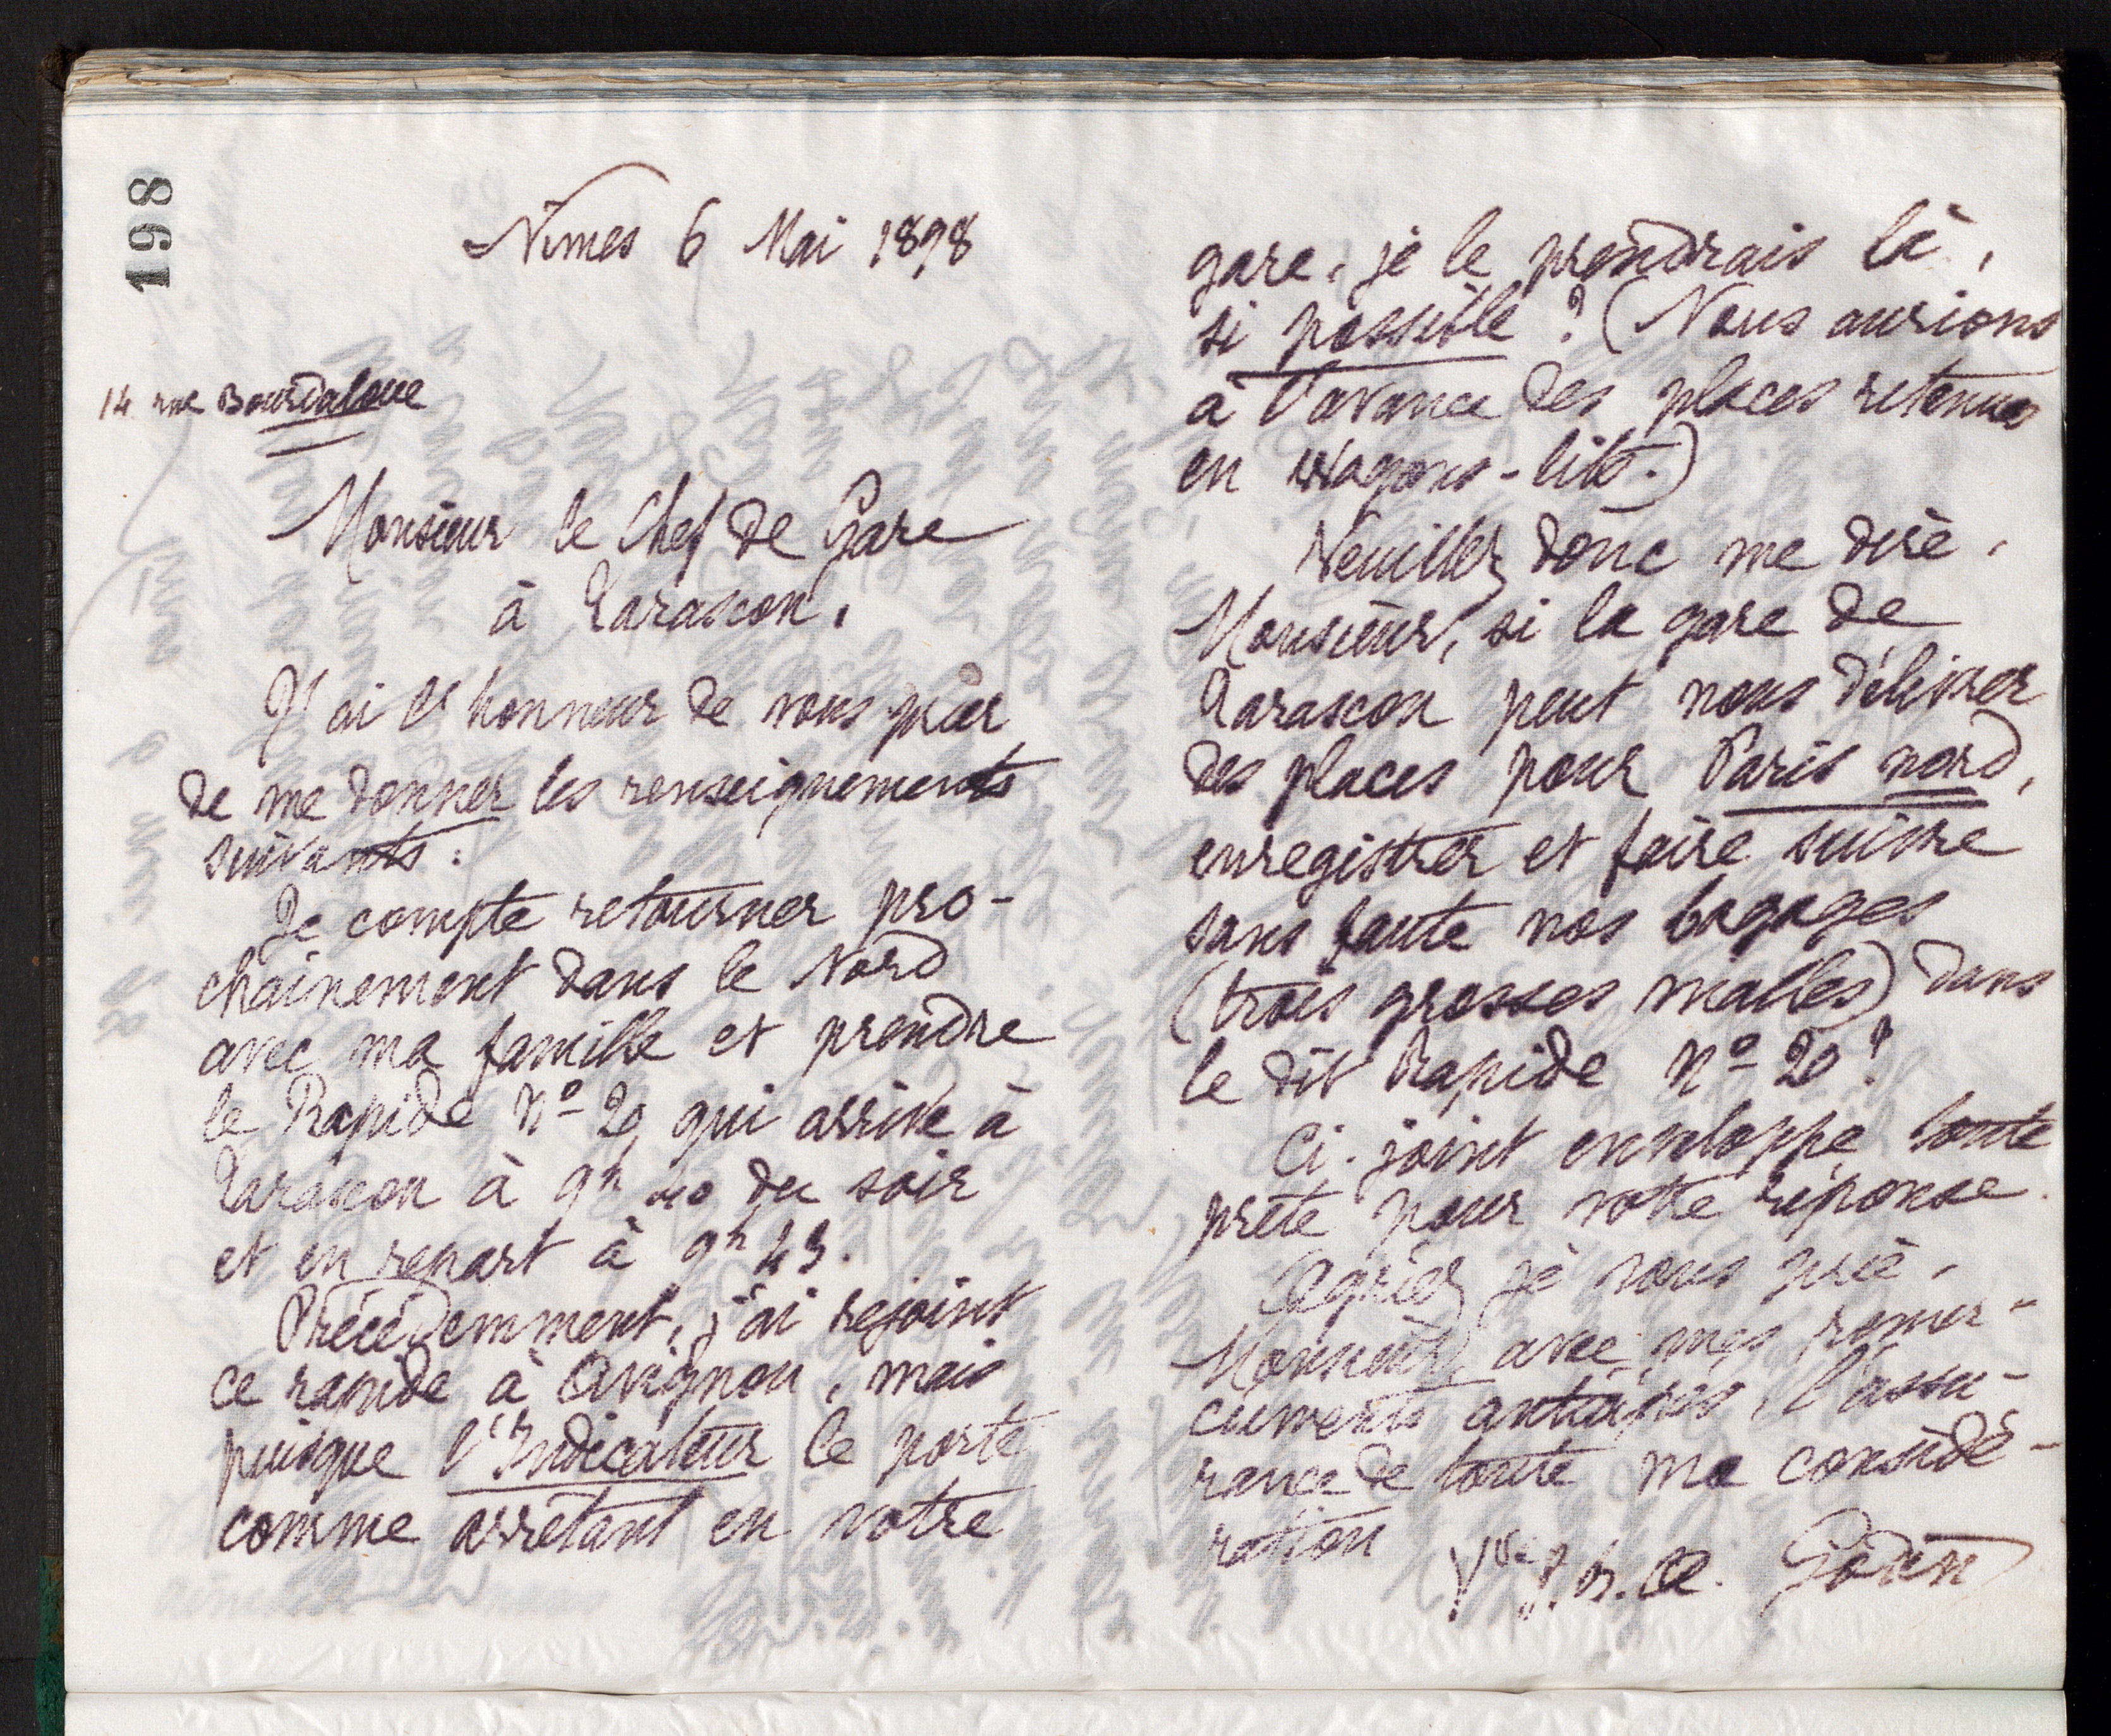 198
Nîmes 6 Mai 1898
14 rue Bourdaloue
Monsieur le Chef de Gare
à Tarascon,
J'ai l'honneur de vous prier
de me donner les renseignements
suivants :
Je compte retourner pro-
chainement dans le Nord
avec ma famille et prendre
le Rapide No 20 qui arrive à
Tarascon à 9h 40 du soir
et en repart à 9h 43.
Précédemment, j'ai rejoint
ce rapide à Avignon, mais
puisque l'Indicateur le porte
comme arrêtant en votre
gare, je le prendrais là,
si possible ? (Nous aurions
à l'avance des places retenues
en wagons-lits.)
Veuillez donc me dire,
Monsieur, si la gare de
Tarascon peut nous délivrer
des places pour Paris nord,
enregistrer et faire suivre
sans faute nos bagages
(trois grosses malles) dans
le dit Rapide No 20 ?
Ci-joint enveloppe toute
prête pour votre réponse.
Agréez, je vous prie,
Monsieur, avec mes remer-
ciements anticipés, l'assu-
rance de toute ma considé-
ration
Vve J. B. A. Godin